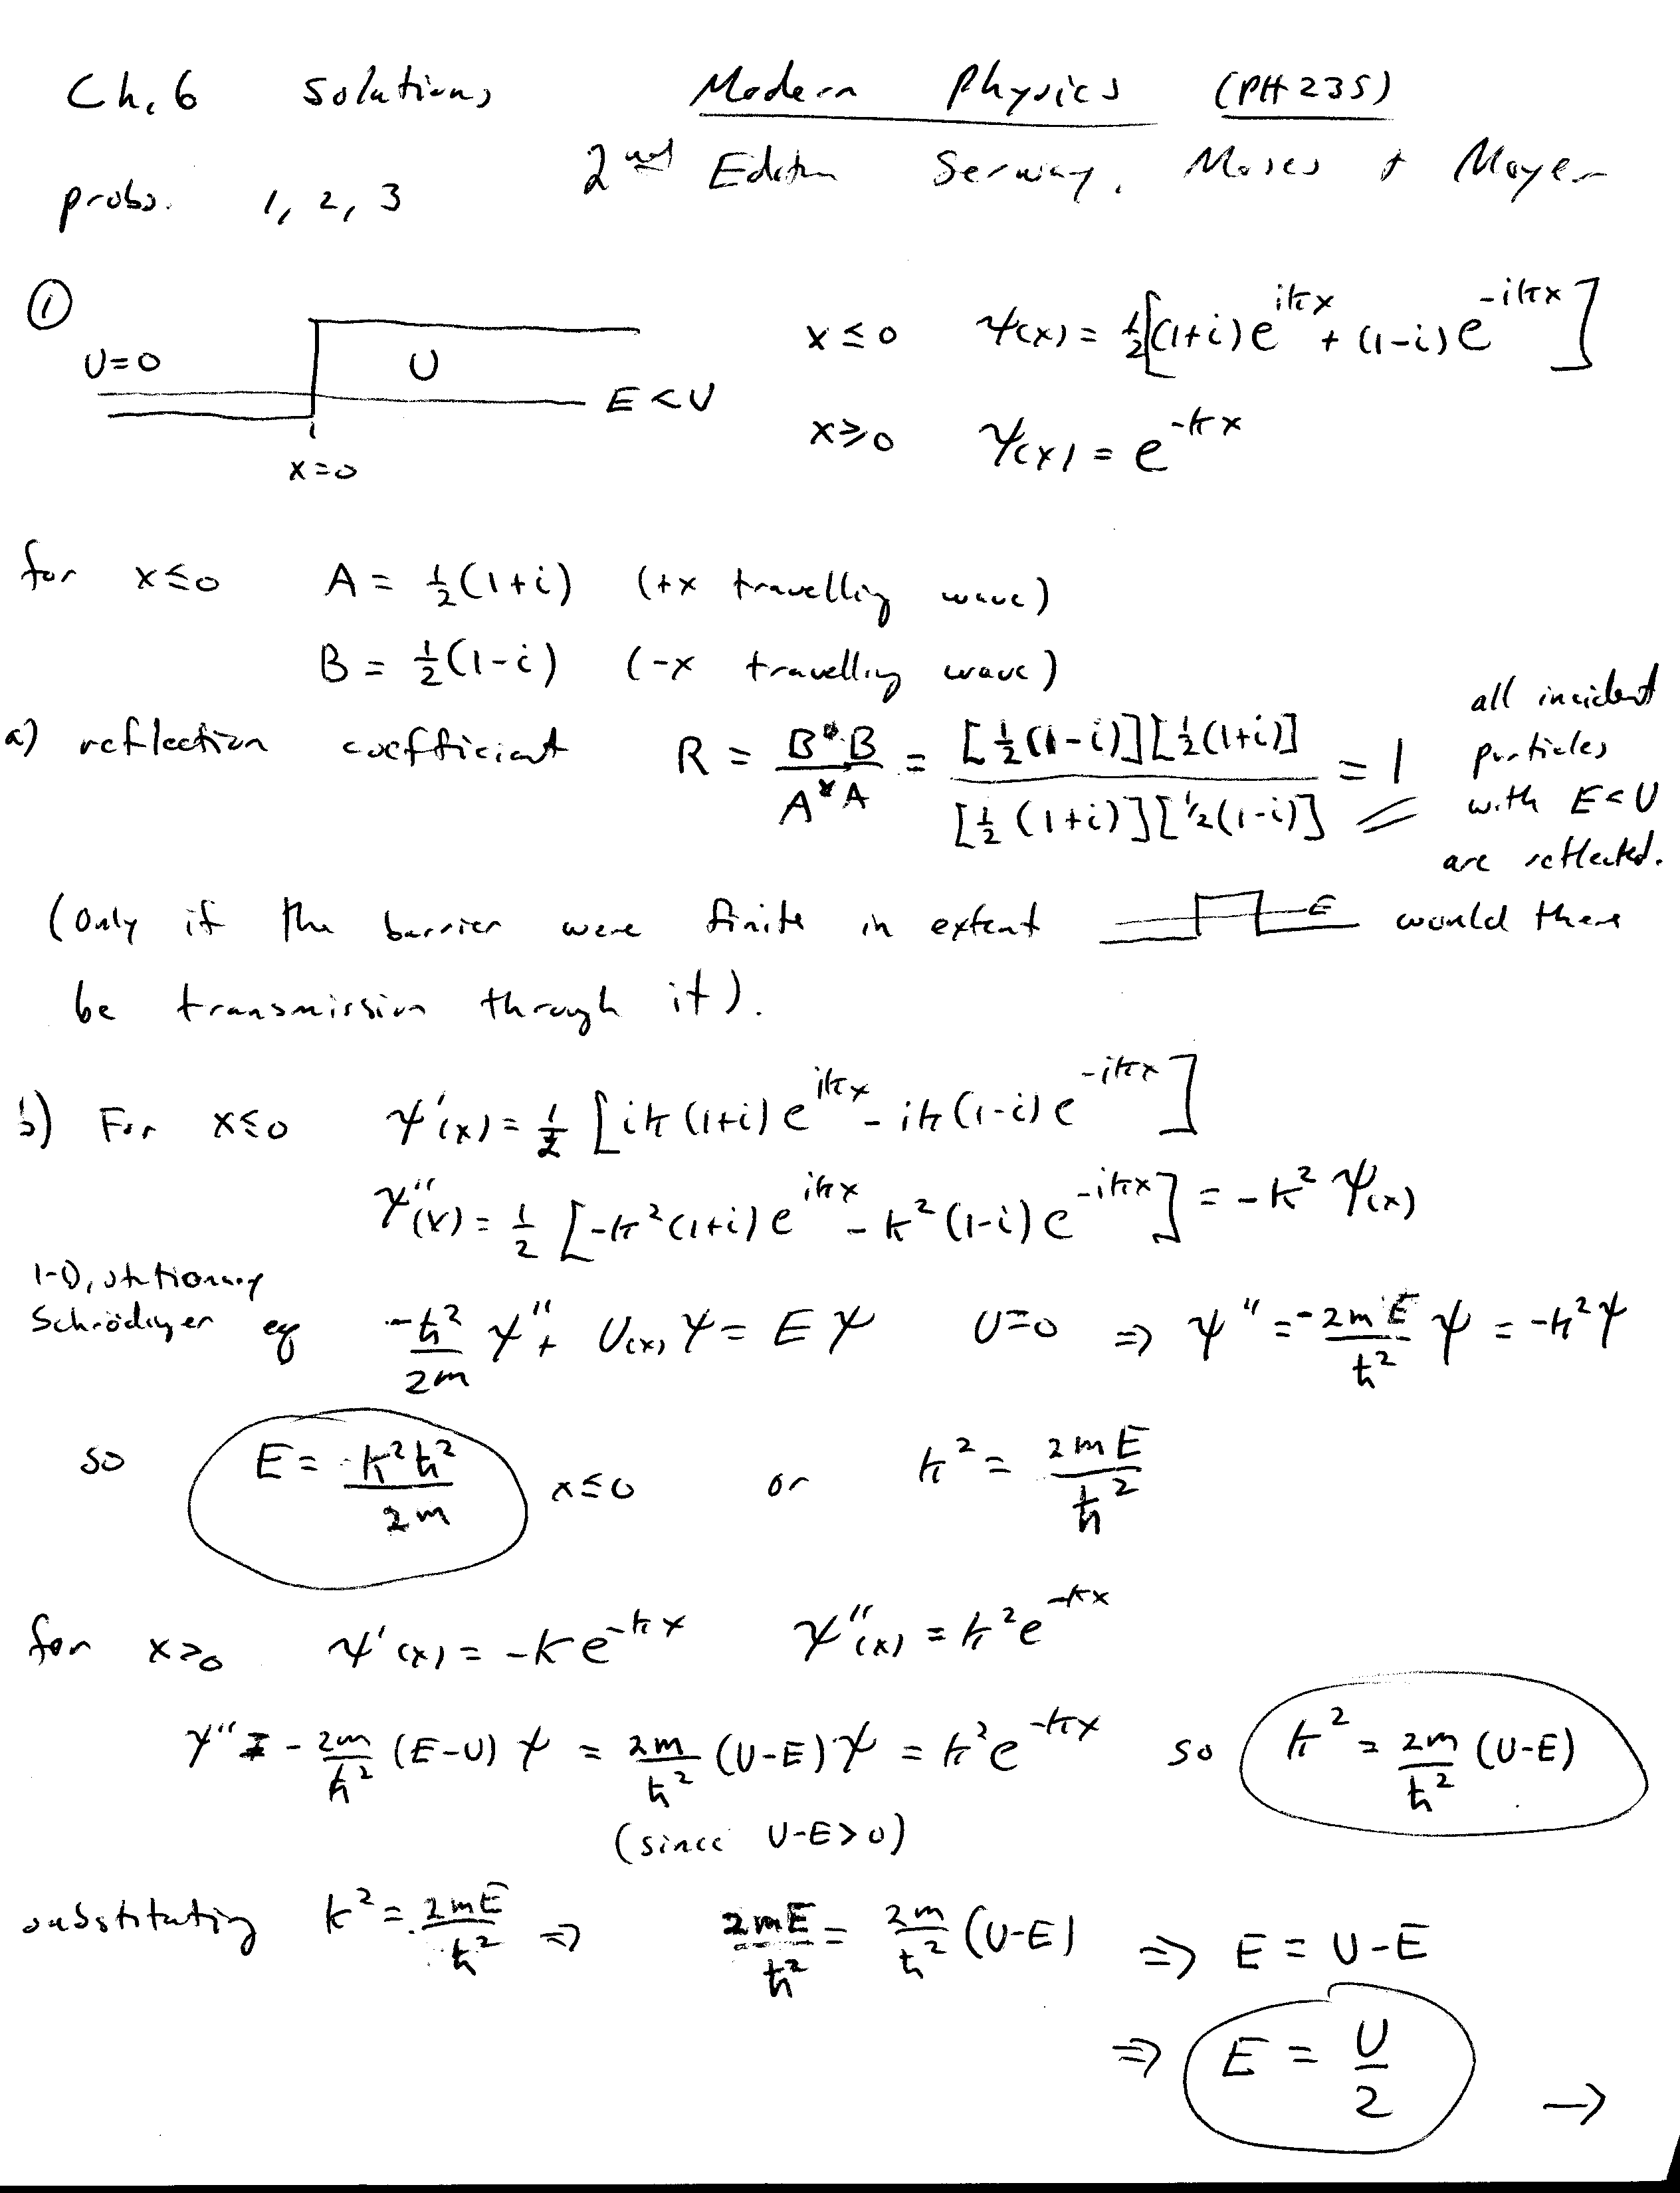 Ch. 6 Solutions Modern Physics (PH 235)
probs. 1, 2, 3 2nd Edition Serway, Moses + Moyer
① U=0 U E<U x=0
x ≤ 0 ψ(x) = ½[(1+i)e^{ikx} + (1-i)e^{-ikx}]
x ≥ 0 ψ(x) = e^{-kx}
for x≤0 A = ½(1+i) (+x travelling wave)
B = ½(1-i) (-x travelling wave)
a) reflection coefficient R = B*B / A*A = [½(1-i)][½(1+i)] / [½(1+i)][½(1-i)] = 1
all incident
particles
with E<U
are reflected.
(Only if the barrier were finite in extent E would there
be transmission through it).
b) For x≤0 ψ'(x) = ½ [ik(1+i)e^{ikx} - ik(1-i)e^{-ikx}]
ψ''(x) = ½ [-k²(1+i)e^{ikx} - k²(1-i)e^{-ikx}] = -k² ψ(x)
1-D, stationary
Schrödinger eq -ħ²/2m ψ'' + U(x) ψ = E ψ U=0 ⇒ ψ'' = -2mE/ħ² ψ = -k²ψ
so E = k²ħ²/2m x≤0 or k² = 2mE/ħ²
for x≥0 ψ'(x) = -ke^{-kx} ψ''(x) = k²e^{-kx}
ψ'' = -2m/ħ² (E-U) ψ = 2m/ħ² (U-E)ψ = k²e^{-kx} so k² = 2m/ħ² (U-E)
(since U-E>0)
substituting k² = 2mE/ħ² ⇒ 2mE/ħ² = 2m/ħ² (U-E) ⇒ E = U-E
⇒ E = U/2 →